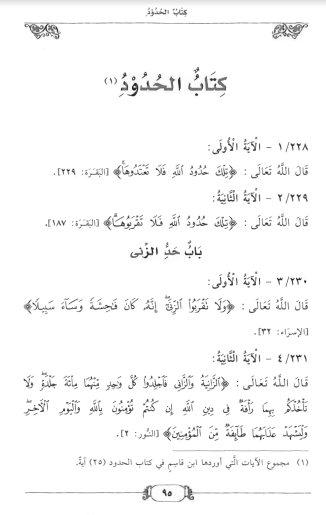 كِتَابُ الحُدُوْدِ
كِتَابُ الحُدُوْدِ (١)
١/٢٢٨ - الْآيَةُ الْأُولَى:
قَالَ اللَّهُ تَعَالَى: ﴿تِلْكَ حُدُودُ اللَّهِ فَلَا تَعْتَدُوهَا﴾ [البَقَرَة: ٢٢٩].
٢/٢٢٩ - الْآيَةُ الثَّانِيَةُ:
قَالَ اللَّهُ تَعَالَى: ﴿تِلْكَ حُدُودُ اللَّهِ فَلَا تَقْرَبُوهَا﴾ [البَقَرَة: ١٨٧].
بَابُ حَدِّ الزِّنَى
٣/٢٣٠ - الْآيَةُ الْأُولَى:
قَالَ اللَّهُ تَعَالَى: ﴿وَلَا تَقْرَبُوا الزِّنَىٰ إِنَّهُ كَانَ فَاحِشَةً وَسَاءَ سَبِيلًا﴾
[الإسرَاء: ٣٢].
٤/٢٣١ - الْآيَةُ الثَّانِيَةُ:
قَالَ اللَّهُ تَعَالَى: ﴿الزَّانِيَةُ وَالزَّانِي فَاجْلِدُوا كُلَّ وَاحِدٍ مِّنْهُمَا مِائَةَ جَلْدَةٍ وَلَا
تَأْخُذْكُم بِهِمَا رَأْفَةٌ فِي دِينِ اللَّهِ إِن كُنتُمْ تُؤْمِنُونَ بِاللَّهِ وَالْيَوْمِ الْآخِرِ
وَلْيَشْهَدْ عَذَابَهُمَا طَائِفَةٌ مِّنَ الْمُؤْمِنِينَ﴾ [النُّور: ٢].
(١) مجموع الآيات الَّتي أوردها ابن قاسِم في كتاب الحدود (٢٥) آيةً.
٩٥